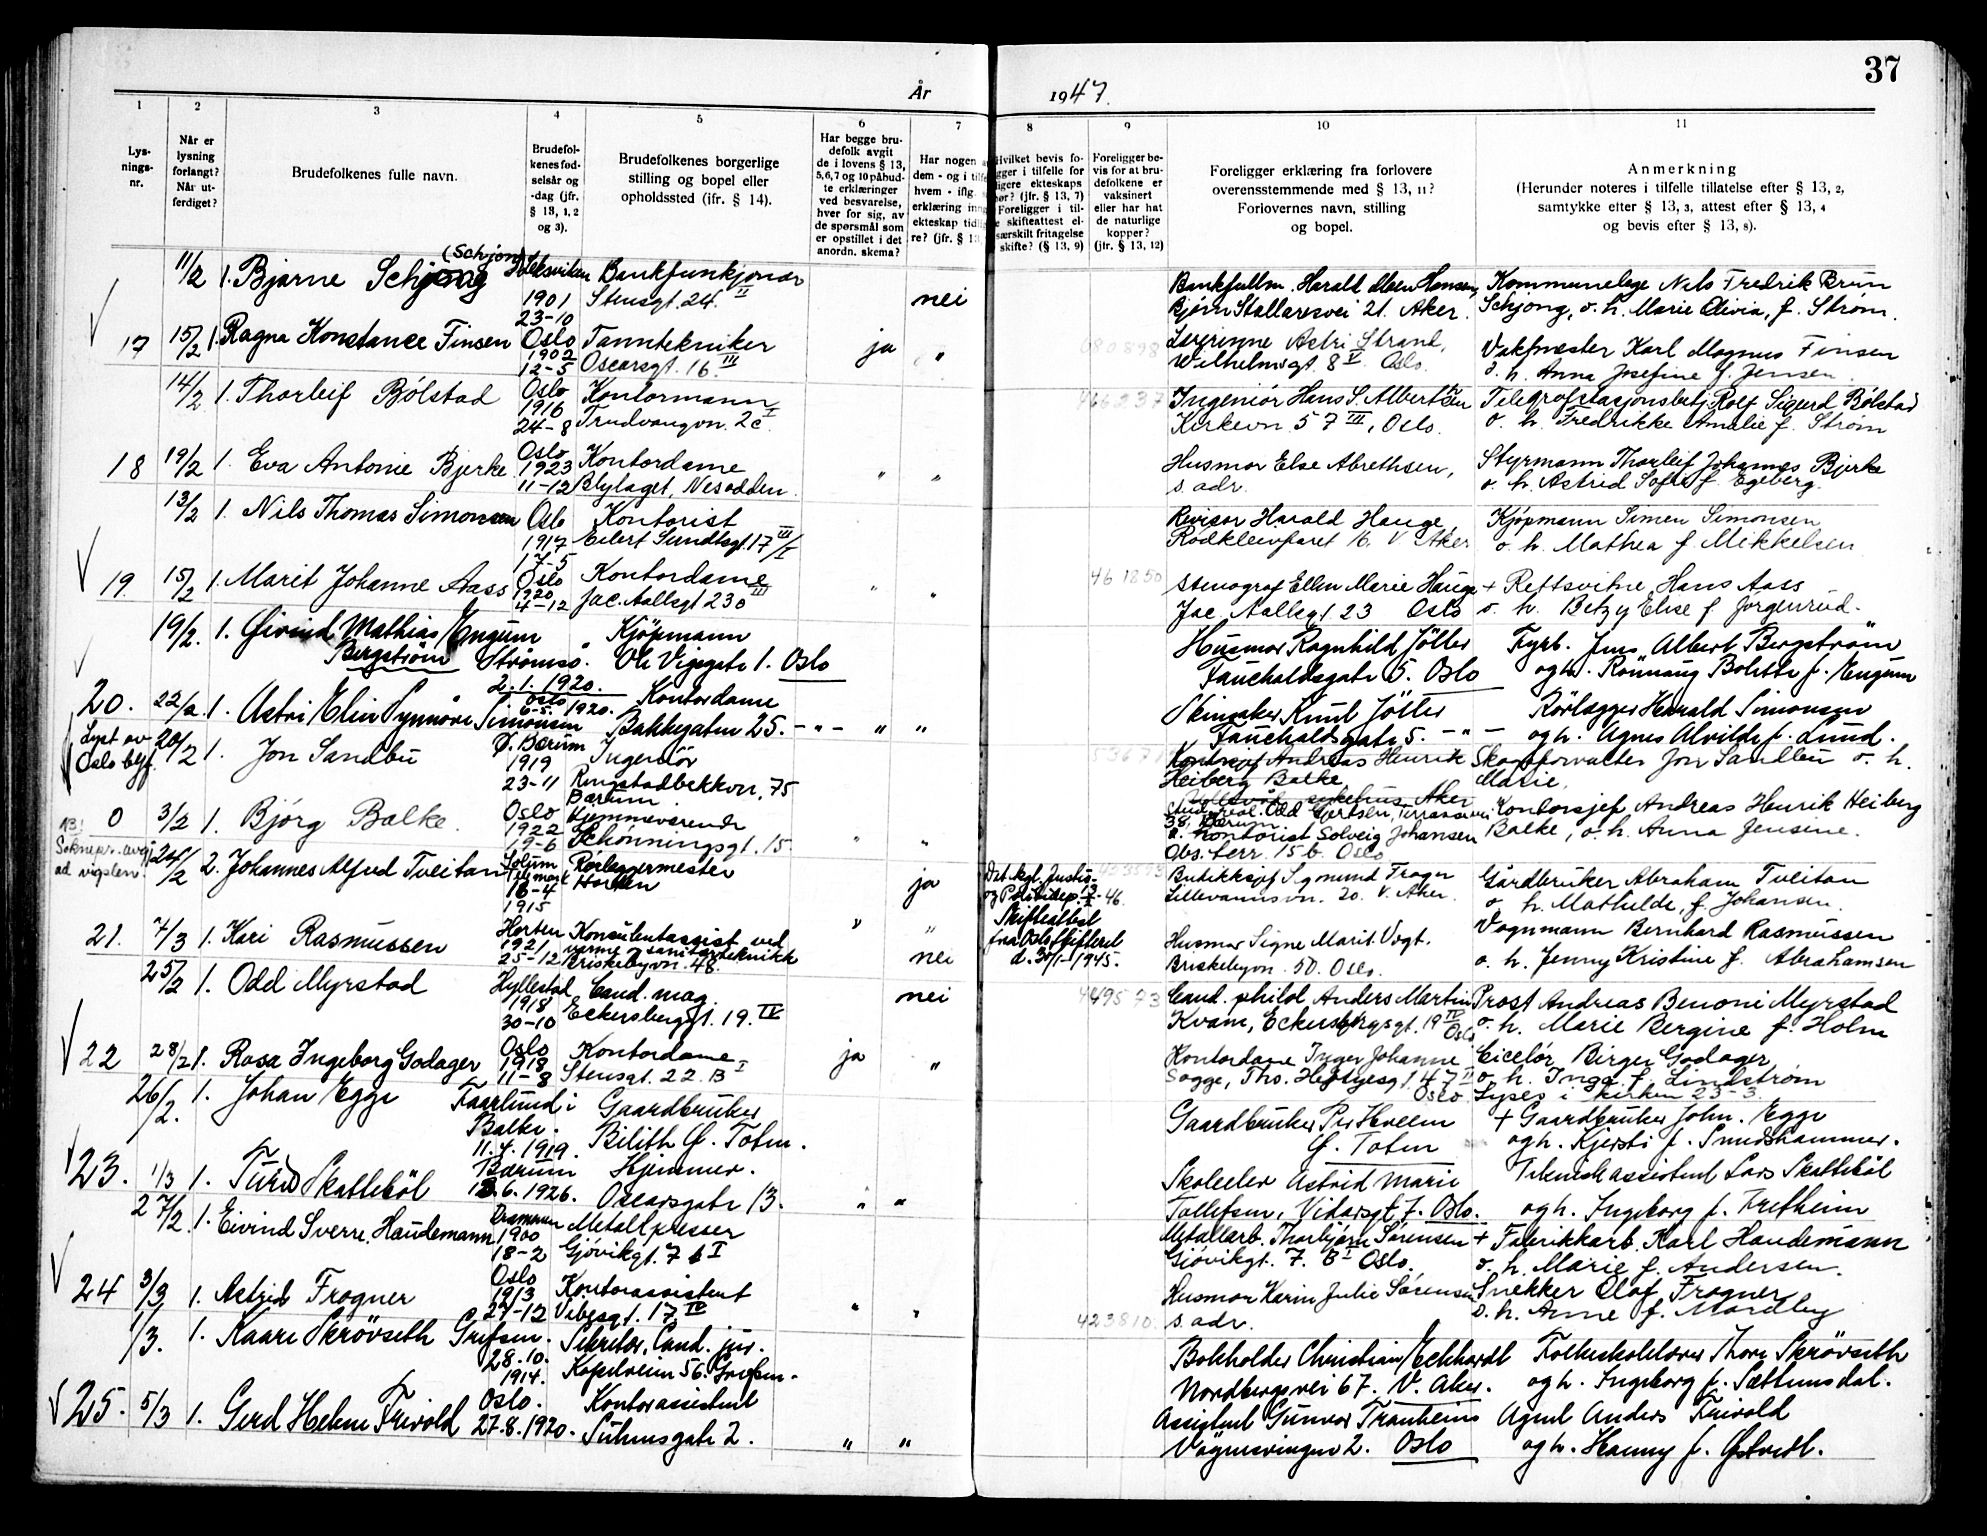 37
År 1947.
1 2 3 4 5 6 7 8 9 10 11
Lys-
nings-
nr.
Når er
lysning
forlangt?
Når ut-
ferdiget?
Brudefolkenes fulle navn.
Brudefol-
kenes fød-
selsår og
-dag (jfr.
§ 13, 1, 2
og 3).
Brudefolkenes borgerlige
stilling og bopel eller
opholdssted (ifr. § 14).
Har begge bru-
defolk avgit
de i lovens § 13,
5,6,7 og 10 påbud-
te erklæringer
ved besvarelse,
hver for sig, av
de spørsmål som
er opstillet i det
anordn. skema?
Har nogen a
dem - og i tilfe
hvem - iflg.
erklæring inng
ekteskap tidlig
re? (jfr. § 13,
Hvilket bevis fo-
gger i tilfelle for
ligere ekteskaps
hør? (jfr. § 13, 7)
Foreligger i til-
e skifteattest el-
særskilt fritagelse
skifte? (§ 13, 9)
Foreligger be-
vis for at bru-
defolkene er
vaksinert
eller har hat
de naturlige
kopper?
(jfr. § 13, 12)
Foreligger erklæring fra forlovere
overensstemmende med § 13, 11?
Forlovernes navn, stilling
og bopel.
Anmerkning
(Herunder noteres i tilfelle tillatelse efter § 13, 2,
samtykke efter § 13, 3, attest efter § 13, 4
og bevis efter § 13, 8).
11/2 1. Bjarne Schjong (Schjong) Leksviken Bankfunksjonær
1901 Stensgt. 24. II nei
23-10
Bankfullm. Harald Olsen Hansen,
Bjørn Stallaresvei 21. Aker.
Kommunelege Nils Fredrik Brun
Schjong, o. h. Marie Olivia, f. Strøm.
17 15/2 1. Ragna Konstance Finsen Oslo Tanntekniker ja "
1902
12-5 Oscarsgt. 16. III
080898
Astri Strand,
Wilhelmsgt. 8 V Oslo.
Vaktmester Karl Magnus Finsen
o. h. Anna Josefine f. Jensen.
14/2 1. Thorleif Bølstad Oslo Kontormann
1916
24-8 Trudvangvn. 2c. I
466237
Ingeniør Hans S. Albertsen
Kirkevn. 57 III, Oslo.
Telegrafstasjonsbetj. Rolf Sigurd Bølstad
o. h. Fredrikke Amalie f. Strøm
18 19/2 1. Eva Antonie Bjerke. Oslo Kontordame
1923
11-12 Blylaget, Nesodden. " "
Husmor Else Abrethsen,
s. adr.
Styrmann Thorleif Johannes Bjerke
o. h. Astrid Sofie f. Egeberg.
13/2 1. Nils Thomas Simonsen Oslo Kontorist
1917 Eilert Sundtsgt. 17 III/I
17-5
Revisor Harald Hauge,
Rødkleivfaret 16. V. Aker
Kjøpmann Simen Simonsen
o. h. Mathea f. Mikkelsen
19. 15/2 1. Marit Johanne Aass Oslo Kontordame
1920
4-12 Jac. Aallsgt. 23b III " "
461850
Stenograf Ellen Marie Hauge
Jac. Aallsgt. 23 Oslo
+ Rettsvitne Hans Aass
o. h. Betzy Elise f. Jørgenrud.
19/2. 1. Øivind Mathias Engum
Bergstrøm Strømsö. Kjöpmann
2. 1. 1920. Ole Vigsgate 1. Oslo
Husmor Ragnhild Jölter
Fauchaldsgate 5. Oslo
Fyrb. Jens Albert Bergström
og h. Rönnaug Bolette f. Engum
20. 22/2. 1. Astri Elin Synnöve Simonsen Oslo Kontordame
6-5. 1920. Bakkegaten 25. - " - " "
Knut Jölter
Fauchaldsgate 5. - " -
Rörlegger Harald Simonsen
og h. Agnes Alvilde f. Lund.
Lyst av
Oslo byf.
20/2 1. Jon Sandbu Ø. Bærum Ingeniør
1919
23-11 Ringstadbekkvn. 75
Bærum
Kontorsjef Andreas Henrik
Heiberg Balke
sykehus Aker
Odd Gjertsen, Terrasseveien
38, Bærum
Skogforvalter Jon Sandbu o. h.
Marie
0 3/2 1. Bjørg Balke. Oslo Hjemmeværende
1922
19-6 Schønningsgt. 15. " "
Kontorist Solveig Johansen
Obs. terr. 15 b. Oslo
Kontorsjef Andreas Henrik Heiberg
Balke, o. h. Anna Jensine.
24/2 2. Johannes Alfred Tveitan Solum Rørleggermester
Telemark Horten ja
18-4
1915
Det kgl. Justis-
og Politidep. -46.
Skifteattest
fra Oslo Skifteret
d. 30/1-1945.
Butikksjef Sigmund Frager
Lillevannsvn. 20. V. Aker.
Gårdbruker Abraham Tveitan
o. h. Mathilde, f. Johansen.
21. 7/3 1. Kari Rasmussen Horten Konsulentassist. ved
1921 varme- & sanitærteknikk
25-12 Briskebyvn. 48. " " nei
Husmor Signe Marit Vogt.
Briskebyvn. 50. Oslo.
Vognmann Bernhard Rasmussen
o. h. Jenny Kristine f. Abrahamsen
25/2 1. Odd Myrstad Hyllestad Cand. mag.
1918
30-10 Eckersbergsgt. 19. IV nei
449573
Cand. philol Anders Martin
Kvam, Eckersbergsgt. 19 IV Oslo
Prost Andreas Benoni Myrstad
o. h. Marie Bergine f. Holm
22 28/2 1. Rosa Ingeborg Godager Oslo Kontordame
1918
11-8 Stensgt. 22. B I ja "
Kontordame Inger Johanne
Sogge, Tho. Heftyesgt. 47 II Oslo
Ciselør Birger Godager
o. h. Inga f. Lindstrøm
Lyses i kirken 23-3.
26/2. 1. Johan Egge Faarlund i
Balke. Gaardbruker
11. 4. 1919. Bilith Ö. Toten.
Gaardbruker Per Hveem
Ö. Toten
+ Gaardbruker John. Egge
og h. Kjersti f. Smedshammer.
23. 1/3 1. Turid Skattebøl Bærum Hjemmev.
13. 6. 1926. Oscarsgate 13. " "
Skoleelev Astrid Marie
Tollefsen, Vidarsgt. 7. Oslo.
Teknisk assistent Lars Skattebøl
og h. Ingeborg f. Fretheim
27/2. 1. Eivind Sverre Haudemann Drammen Metallpresser
1900
18-2 Gjøvikgt. 7 b I
Metallarb. Thorbjørn Sørensen
Gjøvikgt. 7. B I Oslo.
+ Fabrikkarb. Karl Haudemann
o. h. Marie f. Andersen.
24 3/3 1. Astrid Frogner Oslo Kontorassistent
1913
27-12 Vibesgt. 17 IV " "
Husmor Karin Julie Sørensen
s. adr.
Snekker Olaf Frogner
o. h. Anne f. Mordby
1/3. 1. Kaare Skrövseth Grefsen. Sekretær. Cand. jur.
28-10. Kapellveien 56. Grefsen.
1914.
423810
Bokholder Christian Eckhardt
Nordbergvei 67. V. Aker.
Folkeskolelærer Thore Skrövseth
og h. Ingeborg f. Sættemsdal.
25. 5/3 1. Gerd Helene Frivold Oslo. Kontorassistent
27. 8. 1920. Suhmsgate 2. " "
Assistent Gunvor Tranheim
Vögnsvingen 2. Oslo
Agent Anders Frivold
og h. Hanny f. Østvedt.